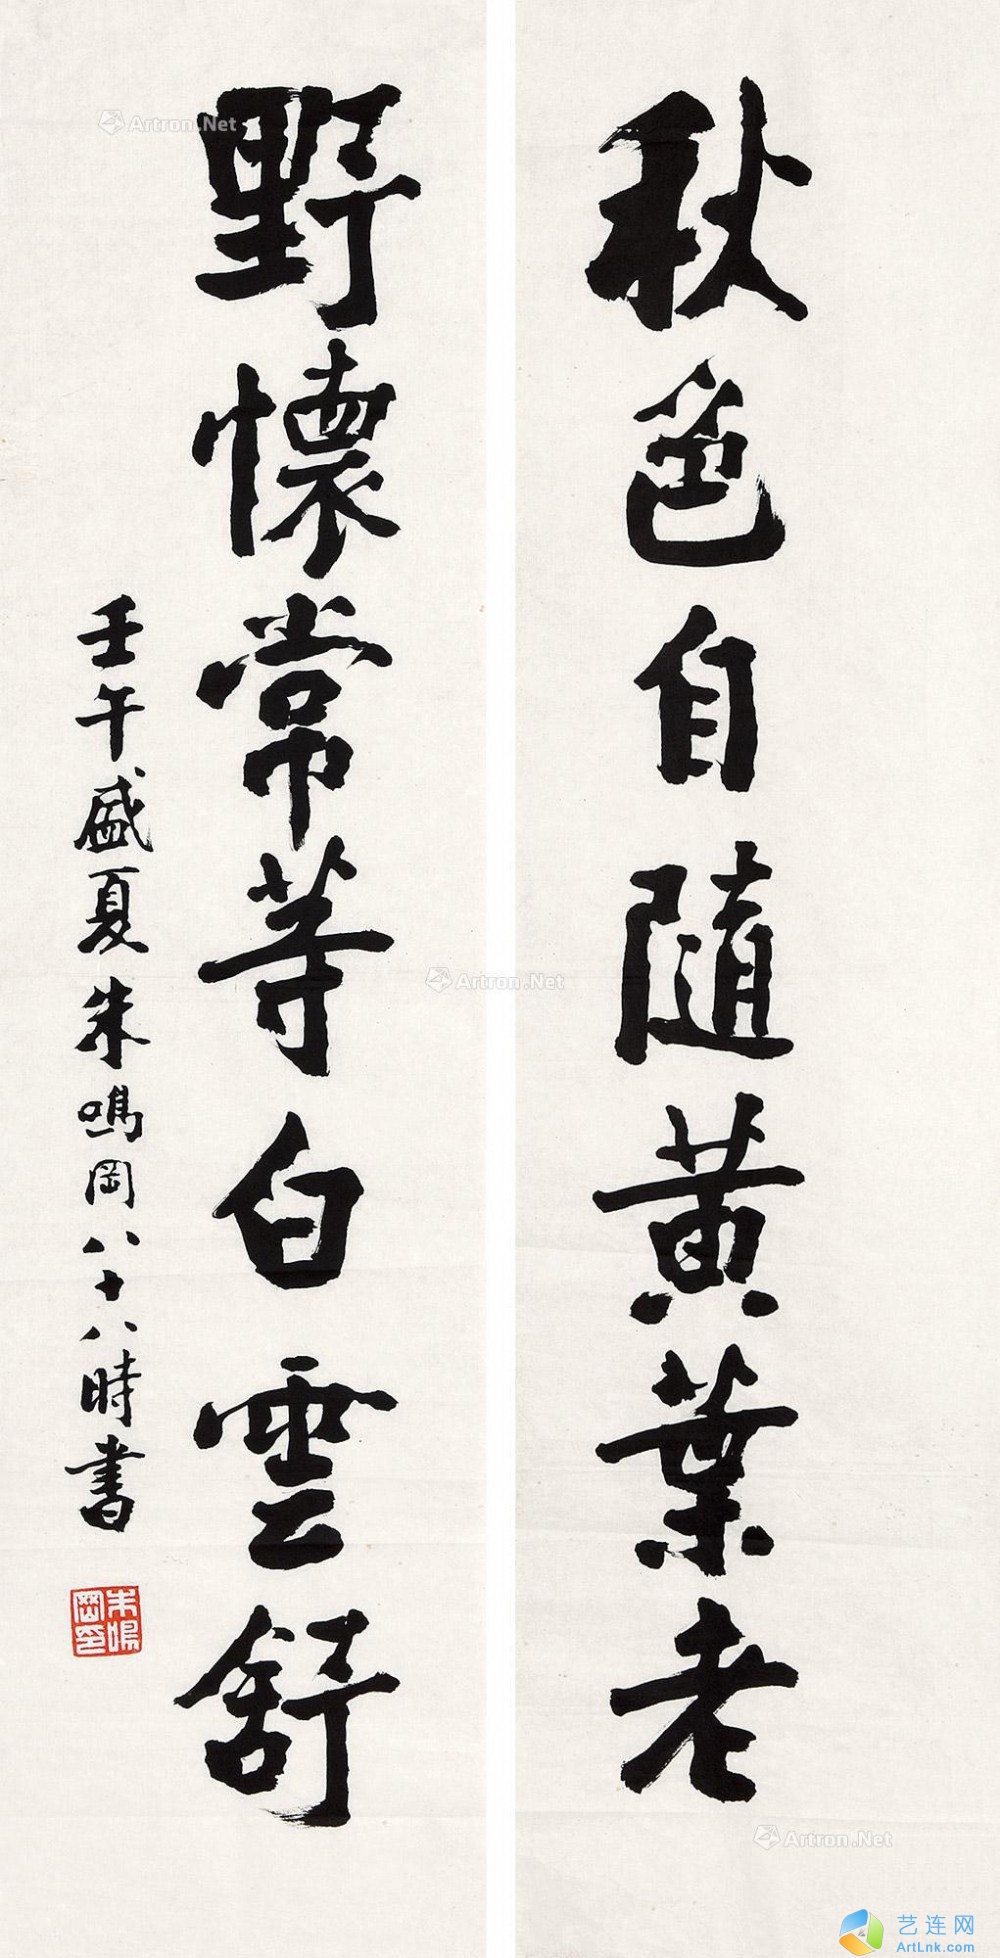 秋色自隨黄葉老
野懷常等白雲舒
壬午盛夏朱鳴岡八十八時書
朱鳴岡印
Artron.Net
Artron.Net
Artron.Net
艺连网
ArtLnk.com